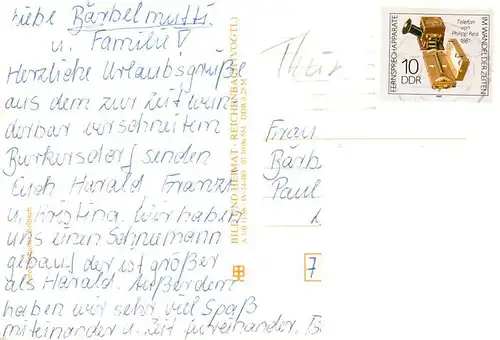 Liebe Bärbelmutti
u. Familie!
Herzliche Urlaubsgrüße
aus dem zur Zeit wun
derbar verschneitem
Burkersdorf senden
Euch Harald Franzi
u. Kristina. Wir haben
uns einen Schneemann
gebaut der ist größer
als Harald. Außerdem
haben wir sehr viel Spaß
miteinander u. Zeit füreinander.
BILD UND HEIMAT · REICHENBACH (VOGTL)
FERNSPRECHAPPARATE
IM WANDEL DER ZEITEN
Telefon
von
Philipp Reis
1861
10
DDR
Frau
Bärb
Paul
7